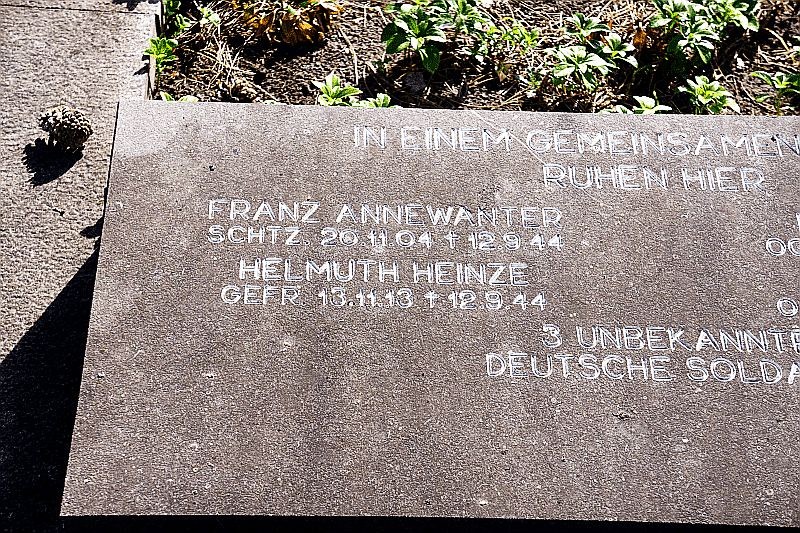 IN EINEM GEMEINSAMEN
RUHEN HIER
FRANZ ANNEWANTER
SCHTZ. 20.11.04 † 12.9.44
HELMUTH HEINZE
GEFR. 13.11.13 † 12.9.44
3 UNBEKANNTE
DEUTSCHE SOLDA